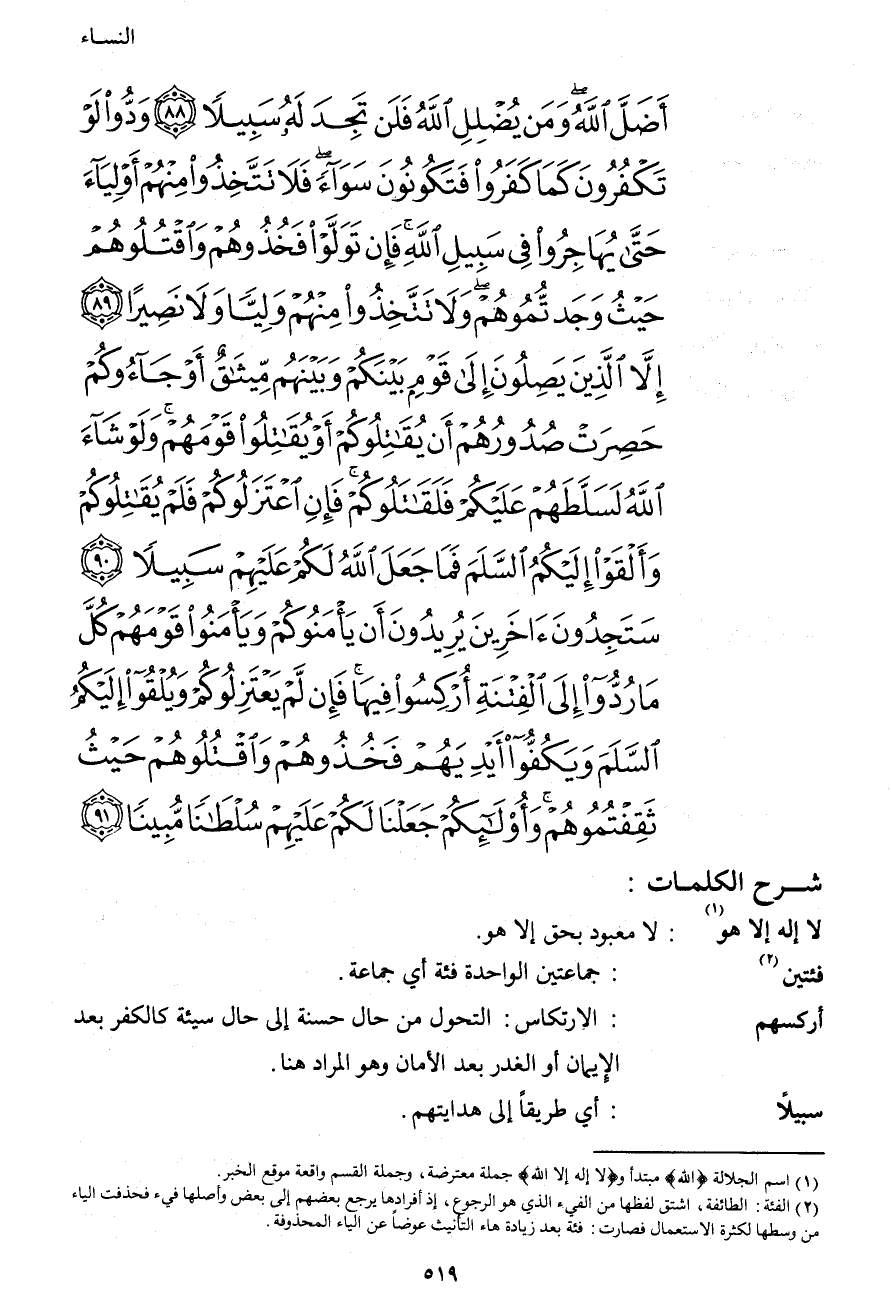 النساء
أَضَلَّ ٱللَّهُ ۖ وَمَن يُضْلِلِ ٱللَّهُ فَلَن تَجِدَ لَهُۥ سَبِيلًا ٨٨ وَدُّوا۟ لَوْ
تَكْفُرُونَ كَمَا كَفَرُوا۟ فَتَكُونُونَ سَوَآءً ۖ فَلَا تَتَّخِذُوا۟ مِنْهُمْ أَوْلِيَآءَ
حَتَّىٰ يُهَاجِرُوا۟ فِى سَبِيلِ ٱللَّهِ ۚ فَإِن تَوَلَّوْا۟ فَخُذُوهُمْ وَٱقْتُلُوهُمْ
حَيْثُ وَجَدتُّمُوهُمْ ۖ وَلَا تَتَّخِذُوا۟ مِنْهُمْ وَلِيًّا وَلَا نَصِيرًا ٨٩
إِلَّا ٱلَّذِينَ يَصِلُونَ إِلَىٰ قَوْمٍۭ بَيْنَكُمْ وَبَيْنَهُم مِّيثَٰقٌ أَوْ جَآءُوكُمْ
حَصِرَتْ صُدُورُهُمْ أَن يُقَٰتِلُوكُمْ أَوْ يُقَٰتِلُوا۟ قَوْمَهُمْ ۚ وَلَوْ شَآءَ
ٱللَّهُ لَسَلَّطَهُمْ عَلَيْكُمْ فَلَقَٰتَلُوكُمْ ۚ فَإِنِ ٱعْتَزَلُوكُمْ فَلَمْ يُقَٰتِلُوكُمْ
وَأَلْقَوْا۟ إِلَيْكُمُ ٱلسَّلَمَ فَمَا جَعَلَ ٱللَّهُ لَكُمْ عَلَيْهِمْ سَبِيلًا ٩٠
سَتَجِدُونَ ءَاخَرِينَ يُرِيدُونَ أَن يَأْمَنُوكُمْ وَيَأْمَنُوا۟ قَوْمَهُمْ كُلَّ
مَا رُدُّوٓا۟ إِلَى ٱلْفِتْنَةِ أُرْكِسُوا۟ فِيهَا ۚ فَإِن لَّمْ يَعْتَزِلُوكُمْ وَيُلْقُوٓا۟ إِلَيْكُمُ
ٱلسَّلَمَ وَيَكُفُّوٓا۟ أَيْدِيَهُمْ فَخُذُوهُمْ وَٱقْتُلُوهُمْ حَيْثُ
ثَقِفْتُمُوهُمْ ۚ وَأُو۟لَٰٓئِكُمْ جَعَلْنَا لَكُمْ عَلَيْهِمْ سُلْطَٰنًا مُّبِينًا ٩١
شرح الكلمات :
لا إله إلا هو (١) : لا معبود بحق إلا هو.
فئتين (٢) : جماعتين الواحدة فئة أي جماعة.
أركسهم : الارتكاس: التحول من حال حسنة إلى حال سيئة كالكفر بعد
الإيمان أو الغدر بعد الأمان وهو المراد هنا.
سبيلاً : أي طريقاً إلى هدايتهم.
(١) اسم الجلالة ﴿الله﴾ مبتدأ و﴿لا إله إلا الله﴾ جملة معترضة، وجملة القسم واقعة موقع الخبر.
(٢) الفئة: الطائفة، اشتق لفظها من الفيء الذي هو الرجوع، إذ أفرادها يرجع بعضهم إلى بعض وأصلها فيء فحذفت الياء
من وسطها لكثرة الاستعمال فصارت: فئة بعد زيادة هاء التأنيث عوضاً عن الياء المحذوفة.
٥١٩